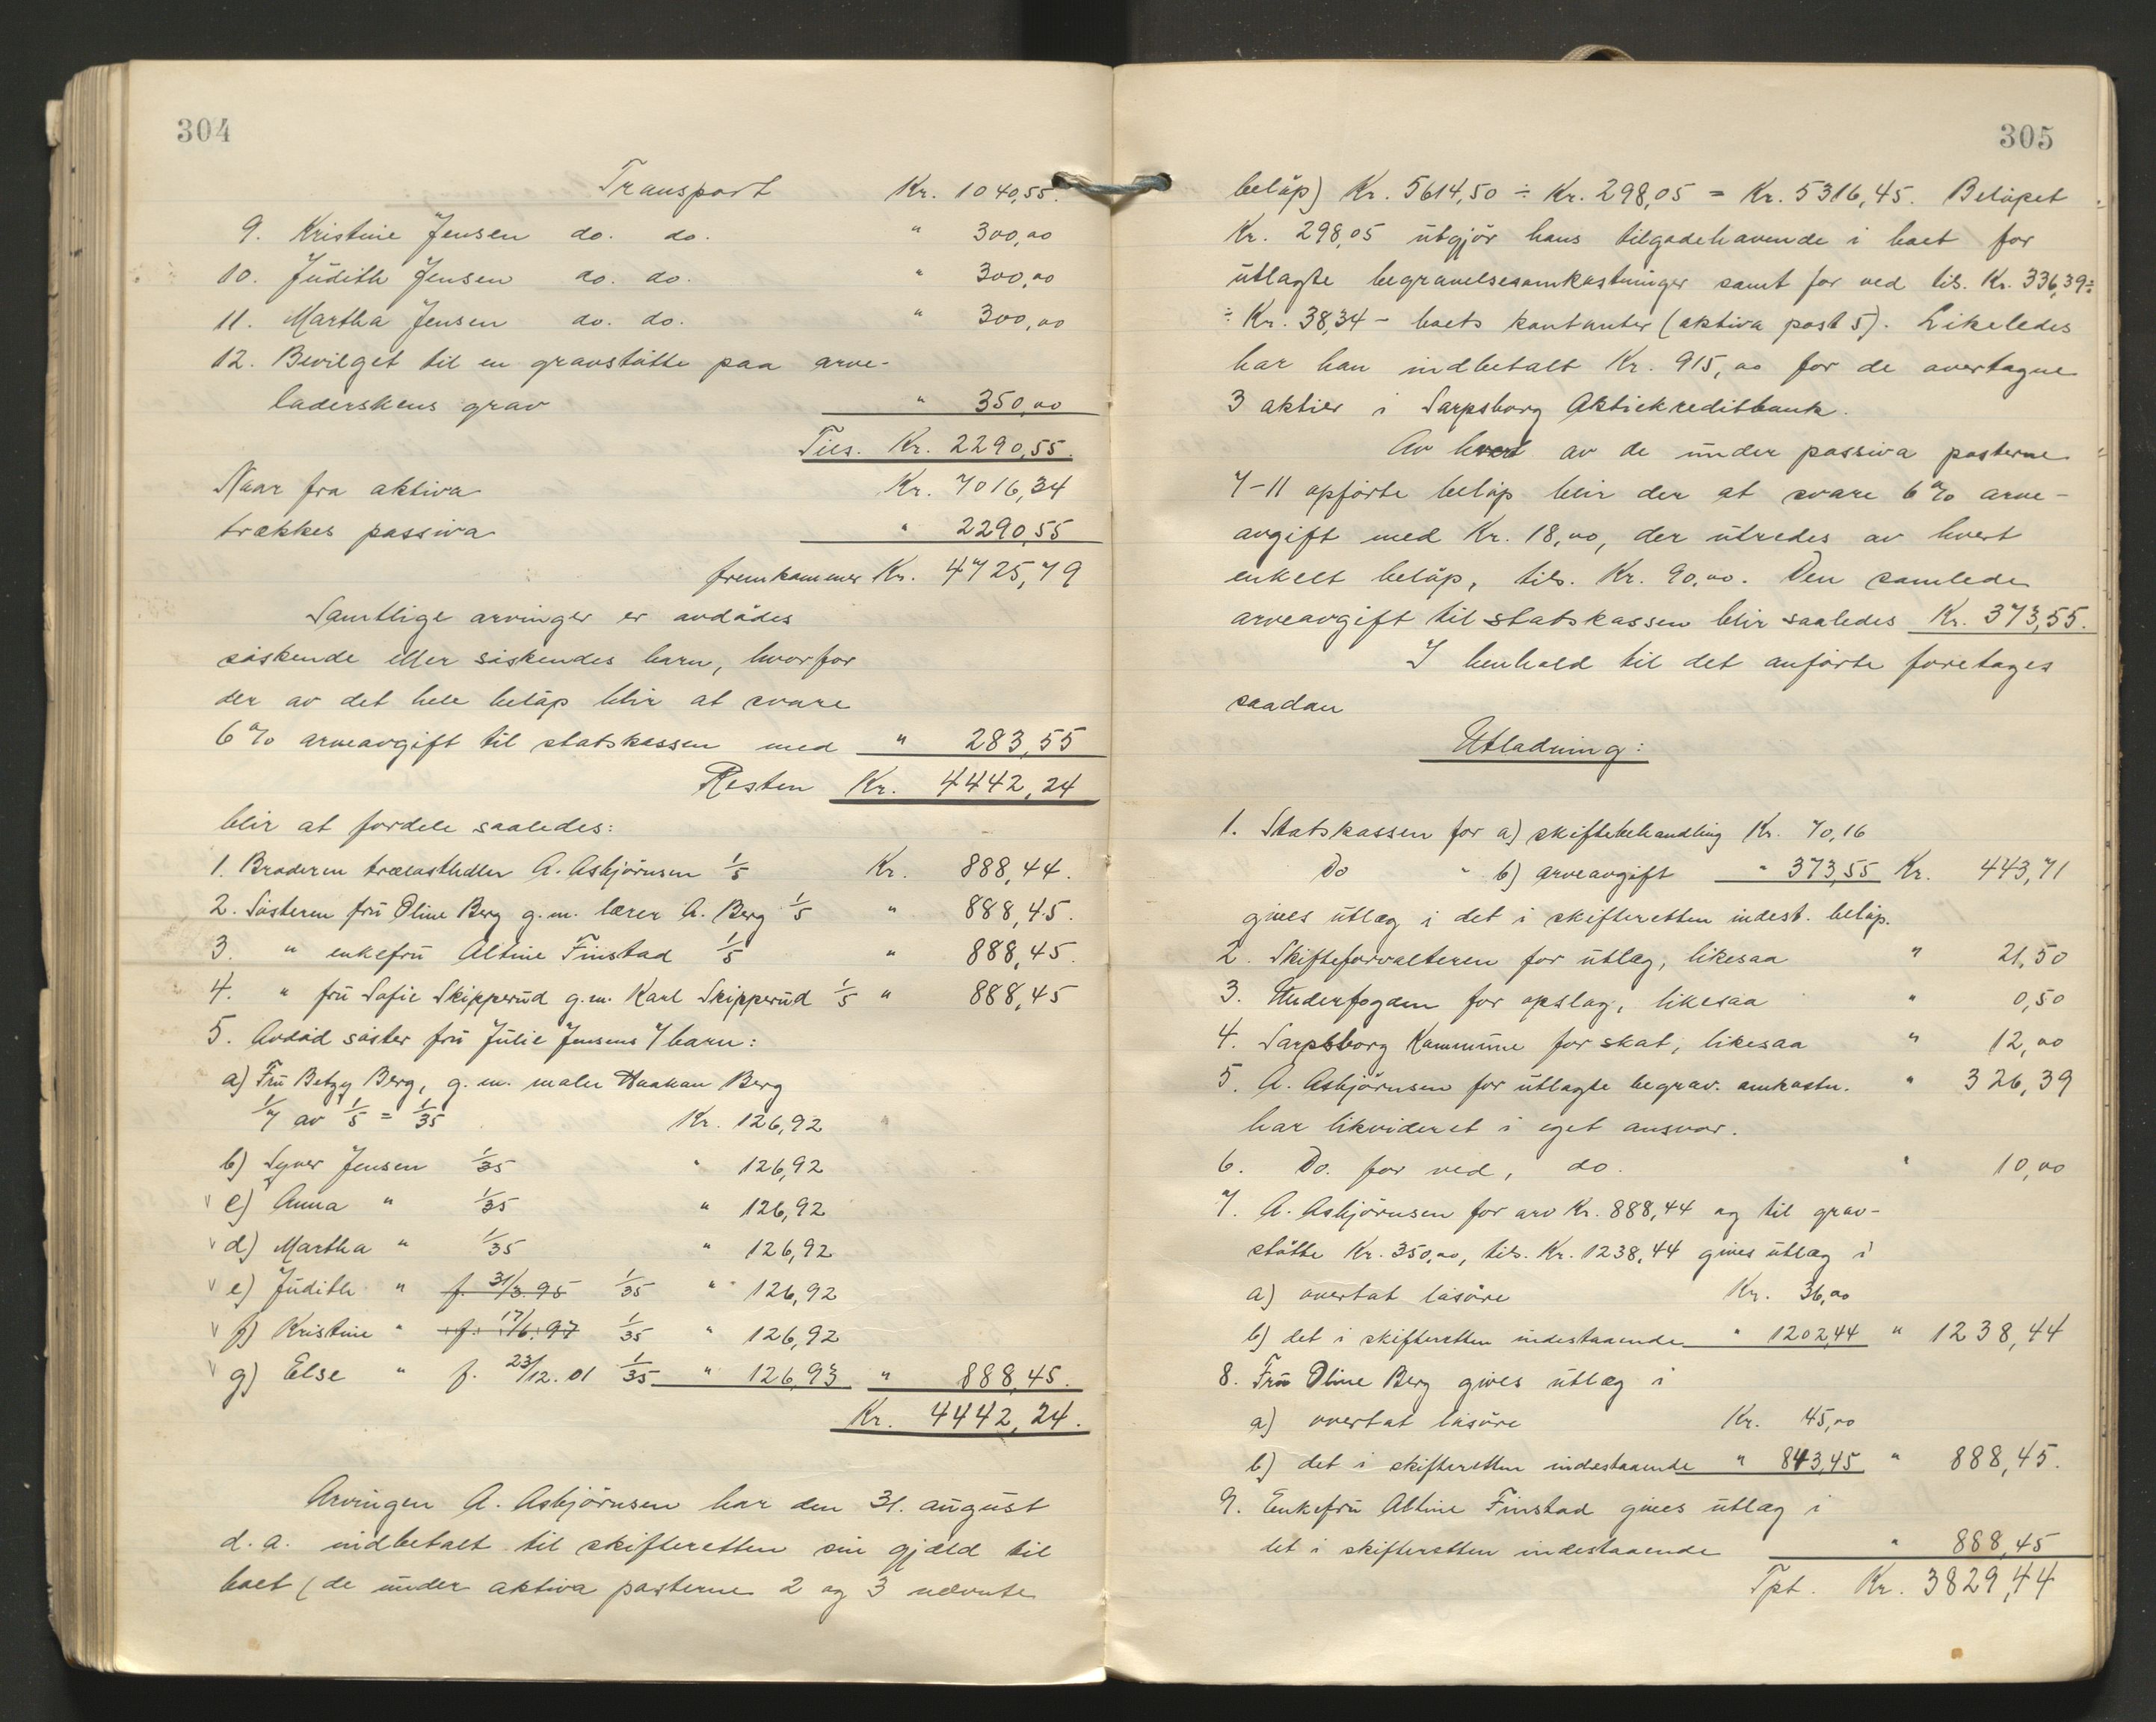 304
Transport Kr. 1040,55.
9. Kristine Jensen do. do. " 300,00
10. Judith Jensen do. do. " 300,00
11. Martha Jensen do. do. " 300,00
12. Bevilget til en gravstøtte paa arve-
laderskens grav " 350,00
Tils. Kr. 2290,55.
Naar fra aktiva Kr. 7016,34
trækkes passiva " 2290,55
fremkommer Kr. 4725,79
Samtlige arvinger er avdødes
søskende eller søskendes barn, hvorfor
der av det hele beløp blir at svare
6 % arveavgift til statskassen med " 283,55
Resten Kr. 4442,24
blir at fordele saaledes:
1. Broderen trælasthdlr A. Asbjørnsen 1/5 Kr. 888,44.
2. Søsteren fru Oline Berg g.m. lærer A. Berg 1/5 " 888,45.
3. " enkefru Altine Finstad 1/5 " 888,45.
4. " fru Sofie Skipperud g.m. Karl Skipperud 1/5 " 888,45
5. Avdød søster fru Julie Jensens 7 barn:
a) Fru Betzy Berg, g.m. maler Haakon Berg
1/7 av 1/5 = 1/35 Kr. 126,92
b) Syver Jensen 1/35 " 126,92
c) Anna " 1/35 " 126,92
d) Martha " 1/35 " 126,92
e) Judith " f. 31/3.95 1/35 " 126,92
f) Kristine " f. 17/6.97 1/35 " 126,92
g) Else " f. 23/12.01 1/35 " 126,93 " 888,45.
Kr. 4442,24.
Arvingen A. Asbjørnsen har den 31. august
d.a. indbetalt til skifteretten sin gjæld til
boet (de under aktiva posterne 2 og 3 nævnte
305
beløp) Kr. 5614,50 ÷ Kr. 298,05 = Kr. 5316,45. Beløpet
Kr. 298,05 utgjør hans tilgodehavende i boet for
utlagte begravelsesomkostninger samt for ved tils. Kr. 336,39 ÷
÷ Kr. 38,34 - boets kontanter (aktiva post 5). Likeledes
har han indbetalt Kr. 915,00 for de overtagne
3 aktier i Sarpsborg Aktiekreditbank.
Av hvert av de under passiva posterne
7-11 opførte beløp blir der at svare 6 % arve-
avgift med Kr. 18,00, der utredes av hvert
enkelt beløp, tils. Kr. 90,00. Den samlede
arveavgift til statskassen blir saaledes Kr. 373,55.
I henhold til det anførte foretages
saadan
Utlodning:
1. Statskassen for a) skiftebehandling Kr. 70,16
Do " b) arveavgift " 373,55 Kr. 443,71
gives utlæg i det i skifteretten indest. beløp.
2. Skifteforvalteren for utlæg, likesaa " 21,50
3. Underfogden for opslag, likesaa " 0,50
4. Sarpsborg Kommune for skat, likesaa " 12,00
5. A. Asbjørnsen for utlagte begrav. omkostn. " 326,39
har likvideret i eget ansvar.
6. Do. for ved, do. " 10,00
7. A. Asbjørnsen for arv Kr. 888,44 og til grav-
støtte Kr. 350,00, tils. Kr. 1238,44 gives utlæg i
a) overtat løsøre Kr. 36,00
b) det i skifteretten indestaaende " 1202,44 " 1238,44
8. Fru Oline Berg gives utlæg i
a) overtat løsøre Kr. 45,00
b) det i skifteretten indestaaende " 843,45 " 888,45.
9. Enkefru Altine Finstad gives utlæg i
det i skifteretten indestaaende " 888,45
Tpt. Kr. 3829,44